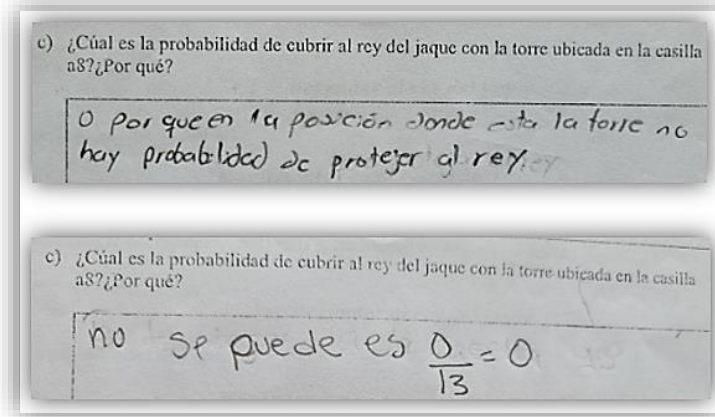 c) ¿Cúal es la probabilidad de cubrir al rey del jaque con la torre ubicada en la casilla
a8?¿Por qué?
0 porque en la posición donde esta la torre no
hay probabilidad de protejer al rey.
c) ¿Cúal es la probabilidad de cubrir al rey del jaque con la torre ubicada en la casilla
a8?¿Por qué?
no se puede es 0/13 = 0